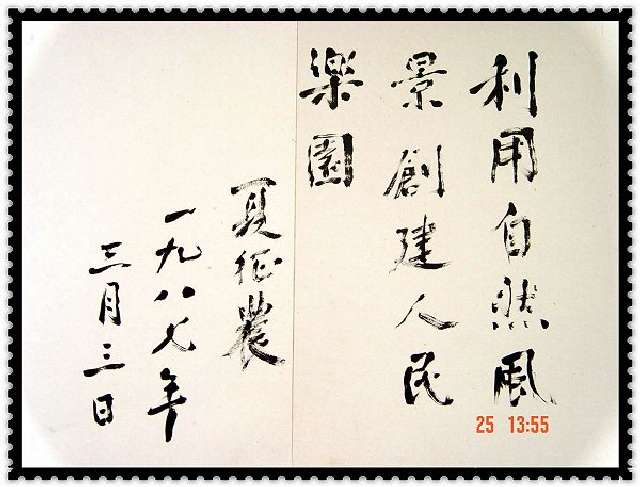 利用自然風
景創建人民
樂園
夏征農
一九八七年
三月三日
25 13:55